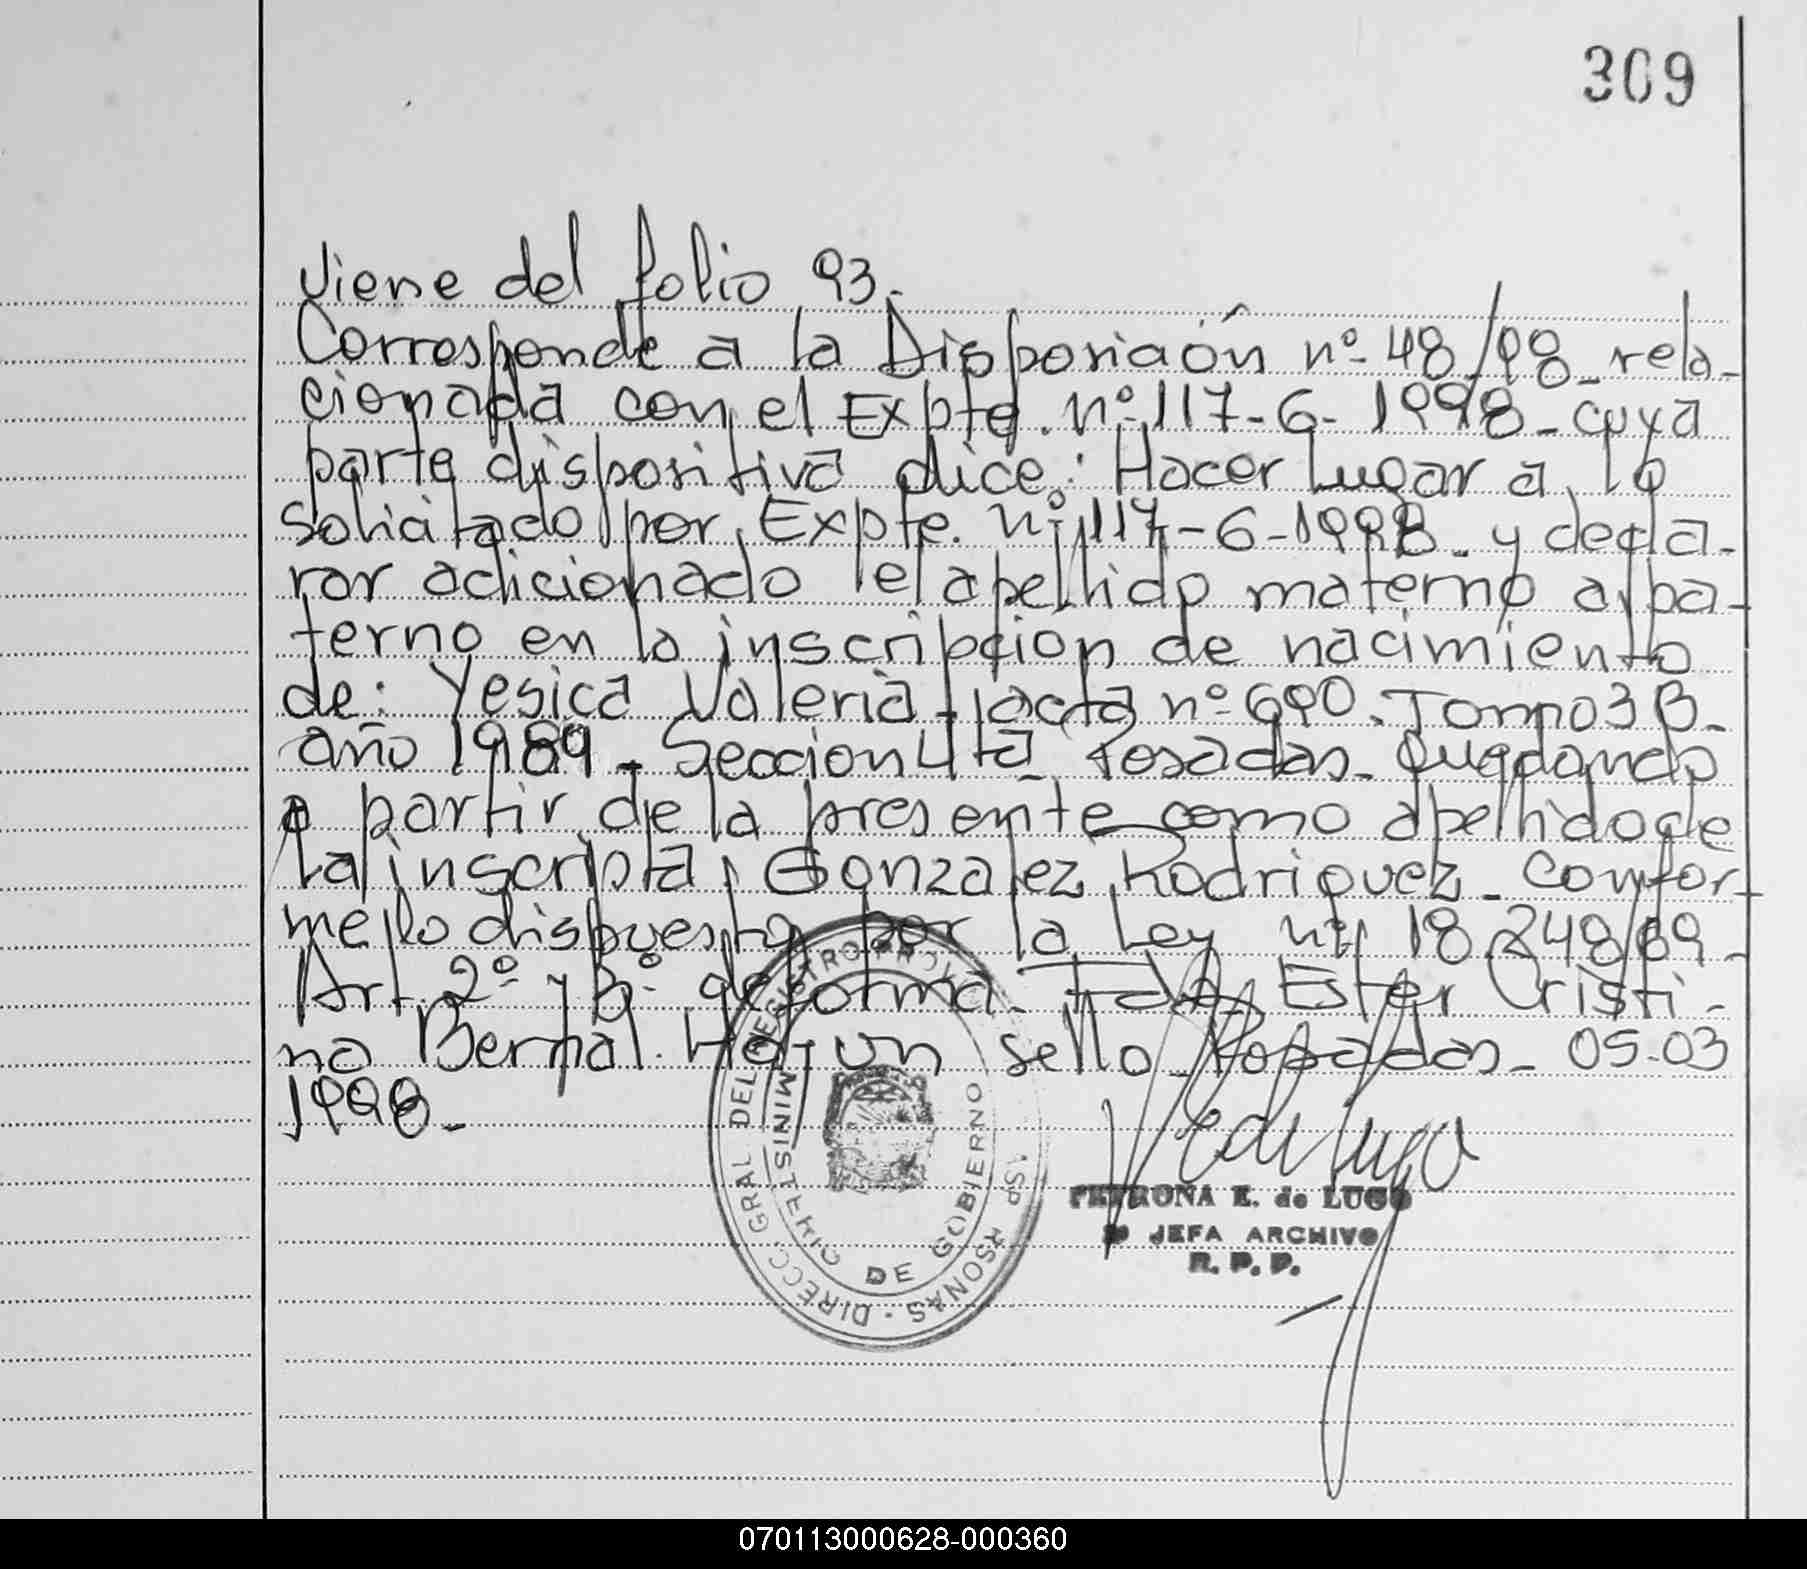 309
Viene del folio 93.
Corresponde a la Disposición nº 48/98 rela-
cionada con el Expte. nº 117-6-1998 - cuya
parte dispositiva dice: Hacer Lugar a lo
solicitado por Expte. nº 117-6-1998 - y decla-
rar adicionado el apellido materno al pa-
terno en la inscripcion de nacimiento
de: Yesica Valeria - acta nº 690. Tomo 3 B -
año 1989 - Seccion 4ta Posadas - Quedando
a partir de la presente como apellido de
La inscripta, Gonzalez Rodriguez - Confor-
me lo dispuesto por la Ley nº 18.248/69 -
Art. 2º y 3º de forma. Fdo. Ester Cristi-
na Bernal. Hay un sello - Posadas - 05-03
1998 -
DIRECC GRAL DEL REGISTRO PROV
MINISTERIO DE GOBIERNO
PETRONA E. de LUGO
JEFA ARCHIVO
R. P. P.
070113000628-000360